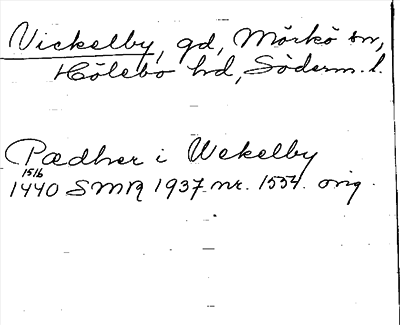 Vickelby, gd, Mörkö sn,
Hölebo hd, Söderm. l.
Pædher i Wekelby
15/6
1440 SMR 1937 nr. 1554. orig.